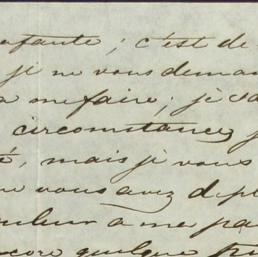 enfante ; c'est de
je ne vous deman
me faire ; je sa
circonstances j
té, mais je vous
ne vous avez dépl
ouleur a ma pa
encore quelque